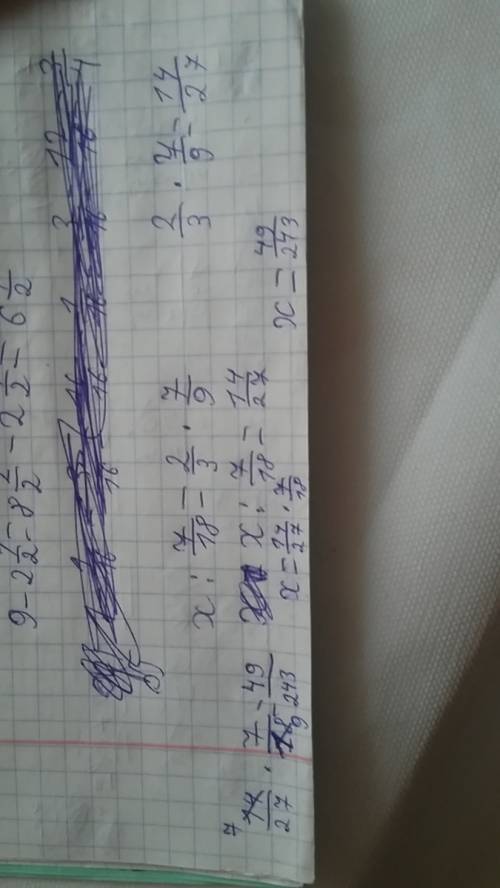 9 - 2 1/2 = 8 2/2 - 2 1/2 = 6 1/2
x : 7/18 = 2/3 · 7/9
2/3 · 7/9 = 14/27
x : 7/18 = 14/27
x = 14/27 · 7/18
x = 49/243
7
14/27 · 7/18 = 49/243
9